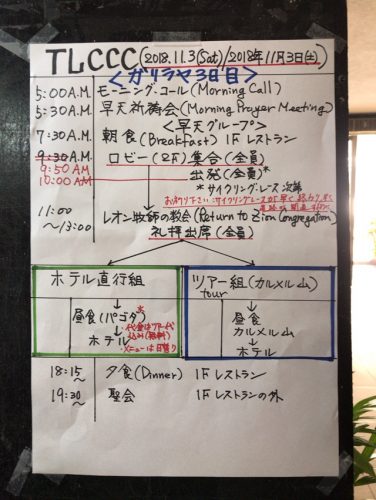 TLCCC (2018.11.3(Sat)/2018年11月3日(土))
<ガリラヤ3日目>
5:00A.M. モーニング・コール(Morning Call)
5:30A.M. 早天祈祷会(Morning Prayer Meeting)
<早天グループ>
7:30A.M. 朝食(Breakfast) 1Fレストラン
9:30A.M. ロビー(2F)集合(全員)
9:50 AM
10:00 AM 出発(全員)*
*サイクリング・レース次第
お祈り下さい:サイクリングレースが早く終わり
11:00 ~13:00 レオン牧師の教会(Return to Zion Congregation)
礼拝出席(全員)
ホテル直行組
昼食(パゴダ)*
代金はツアー代
込み(無料)
メニューは日替り
ホテル
ツアー組(カルメル山)
tour
昼食
カルメル山
ホテル
18:15~ 夕食(Dinner) 1Fレストラン
19:30~ 聖会 1Fレストランの外